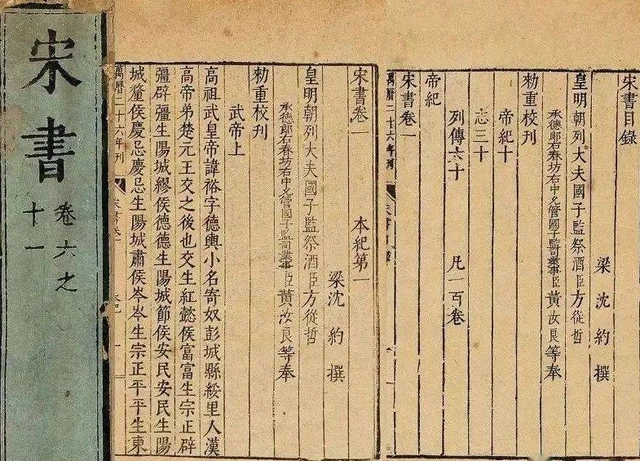 宋書目錄
梁沈約撰
皇明朝列大夫國子監祭酒臣方從哲
承德郎右春坊右中允管國子監司業事臣黃汝良等奉
勅重校刊
帝紀十
志三十
列傳六十 凡一百卷
帝紀
宋書卷一
萬曆二十六年刊
宋書卷一 本紀第一
梁沈約撰
皇明朝列大夫國子監祭酒臣方從哲
承德郎右春坊右中允管國子監司業事臣黃汝良等奉
勅重校刊
武帝上
高祖武皇帝諱裕字德輿小名寄奴彭城縣綏里人漢
高帝弟楚元王交之後也交生紅懿侯富富生宗正辟
彊辟彊生陽城繆侯德德生陽城節侯安民安民生陽
城釐侯慶忌慶忌生陽城肅侯岑岑生宗正平平生東
萬曆二十六年刊 宋書卷一
宋書
卷六之
十一